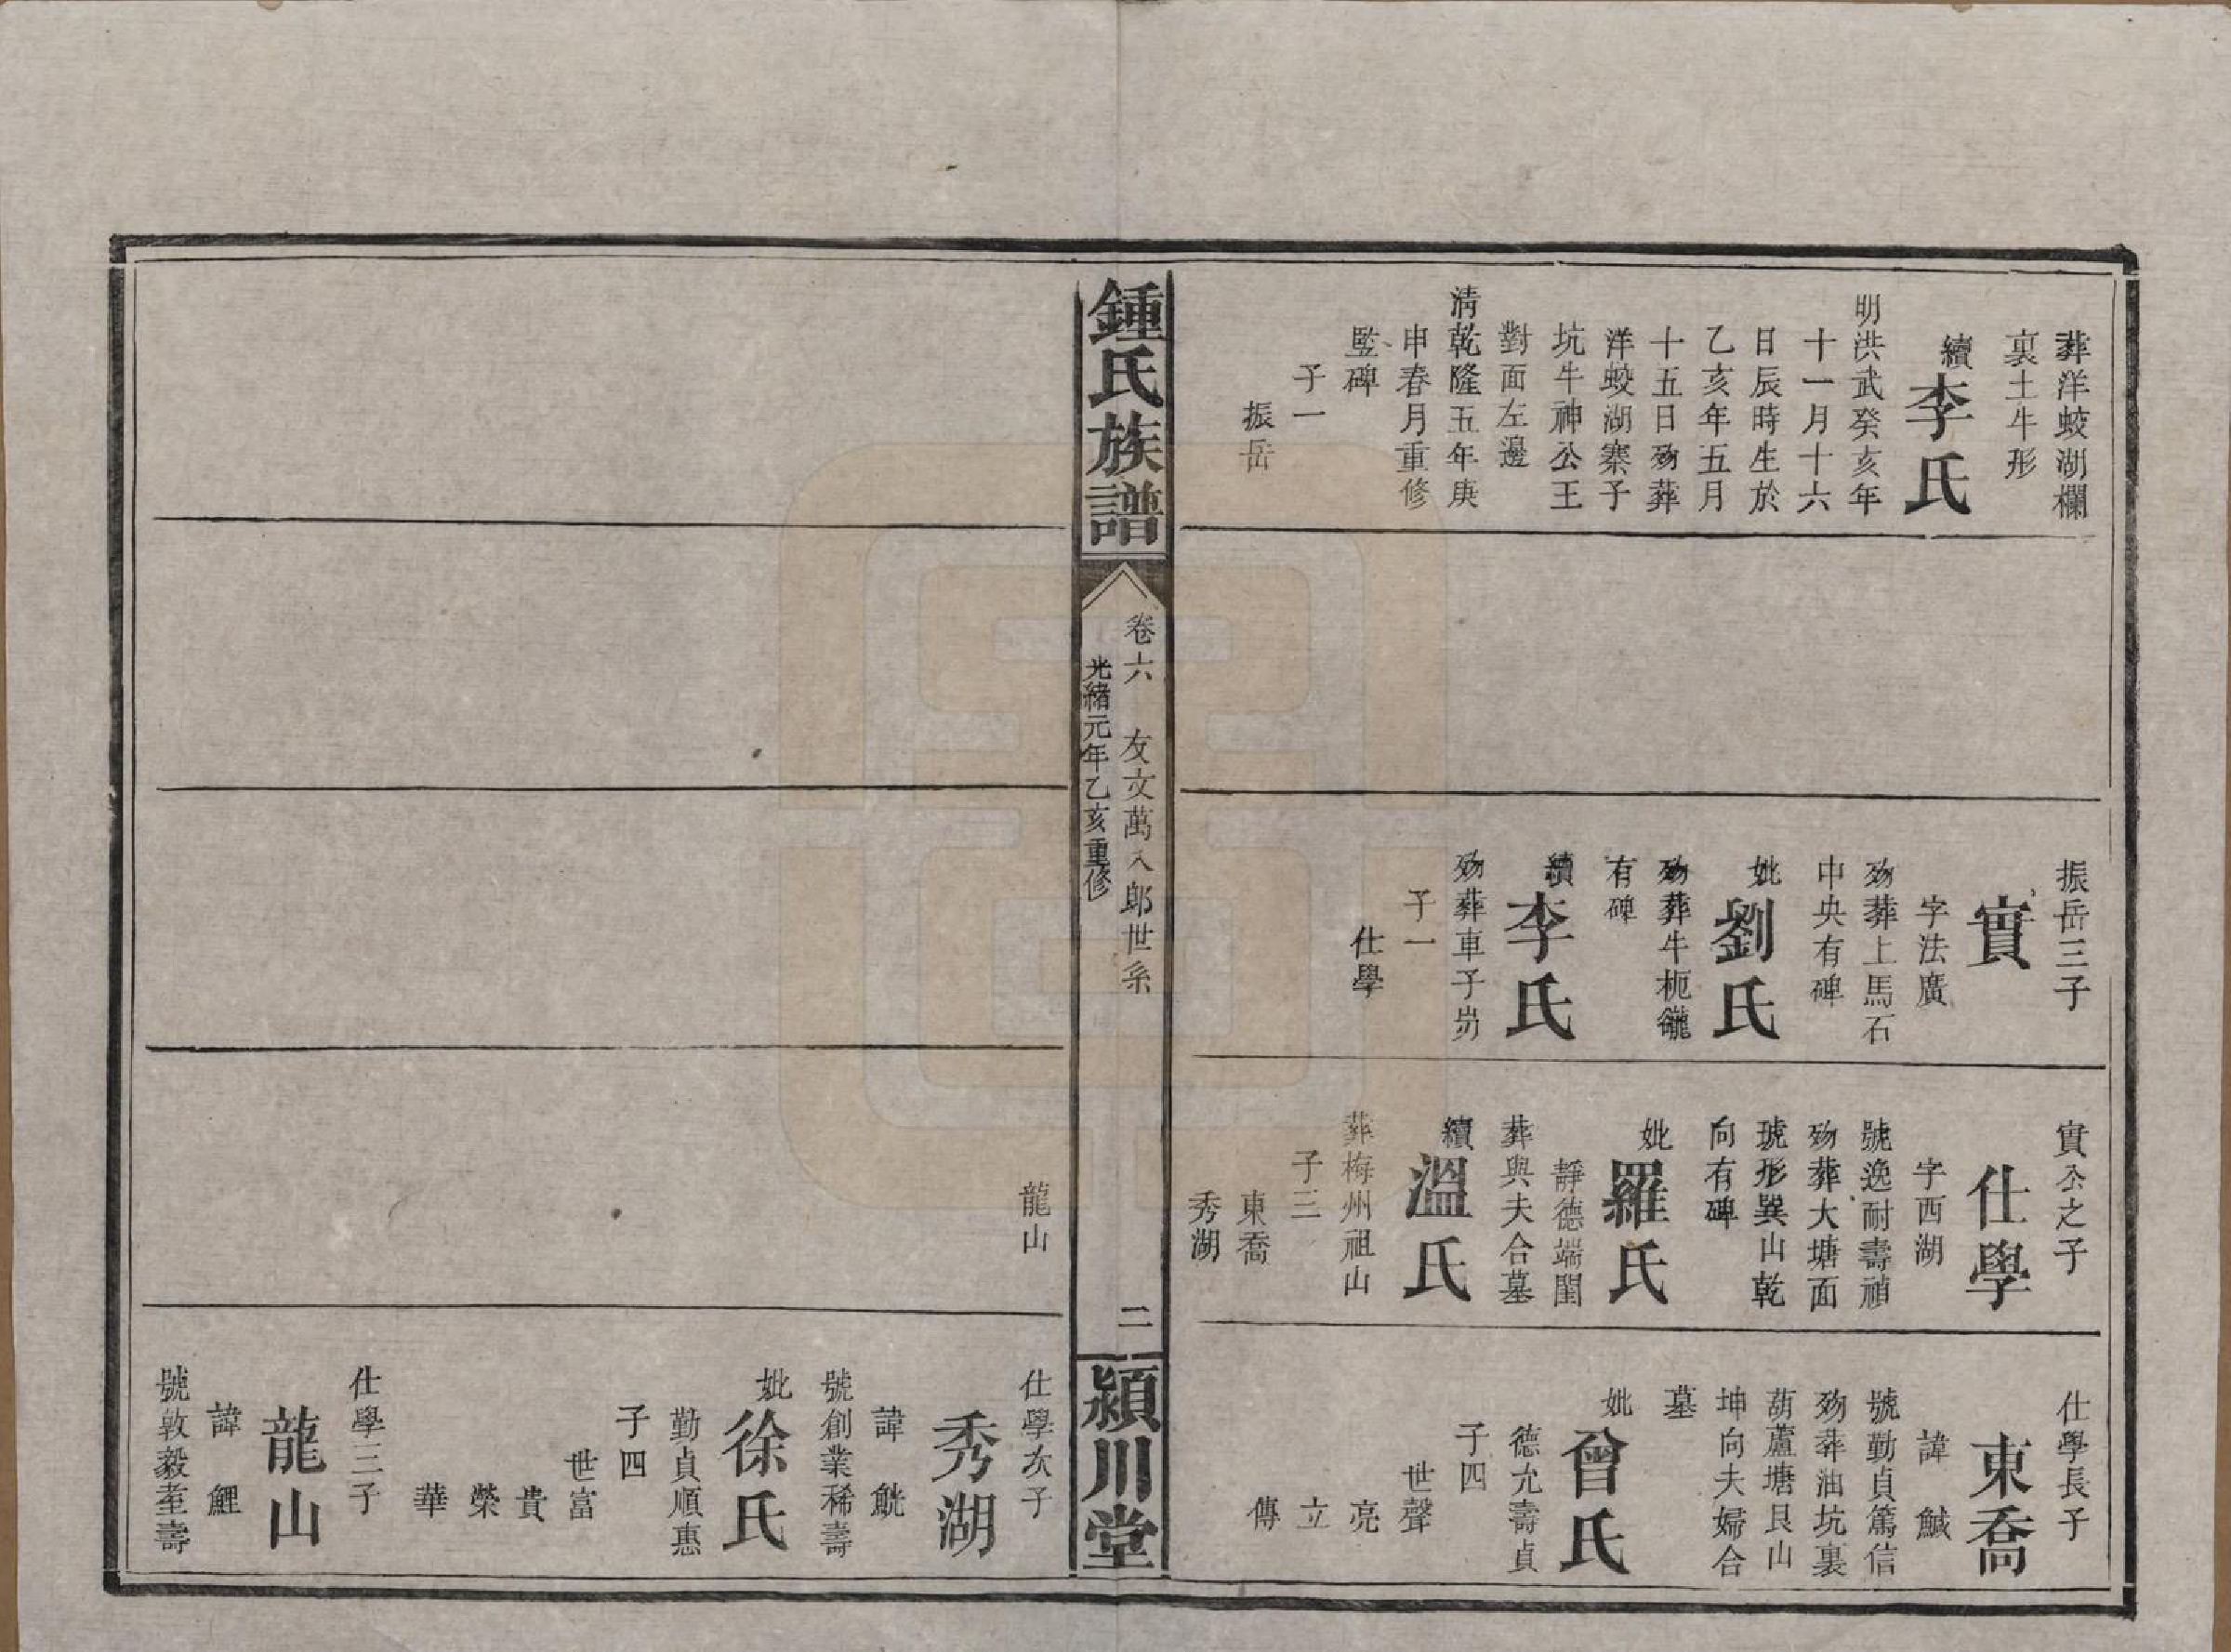 葬洋蛟湖欄
裏土牛形
續
李氏
明洪武癸亥年
十一月十六
日辰時生於
乙亥年五月
十五日歿葬
洋蛟湖寨子
坑牛神公王
對面左邊
清乾隆五年庚
申春月重修
監碑
子一
振岳
振岳三子
實
字法廣
歿葬上馬石
中央有碑
妣
劉氏
歿葬牛栀
有碑
續
李氏
歿葬車子岃
子一
仕學
實公之子
仕學
字西湖
號逸耐壽禎
歿葬大塘面
琥形巽山乾
向有碑
妣
羅氏
靜德端閨
葬與夫合墓
續
溫氏
葬梅州祖山
子三
東喬
秀湖
仕學長子
東喬
諱 鰔
號勤貞篤信
歿葬油坑裏
葫蘆塘艮山
坤向夫婦合
墓
妣
曾氏
德允壽貞
子四
世聲
亮
立
傳
鍾氏族譜
卷六 友文萬八郎世系
光緒元年乙亥重修
二
潁川堂
龍山
仕學次子
秀湖
諱 鯍
號創業稀壽
妣
徐氏
勤貞順惠
子四
世富
貴
榮
華
仕學三子
龍山
諱 鯉
號敦毅耋壽